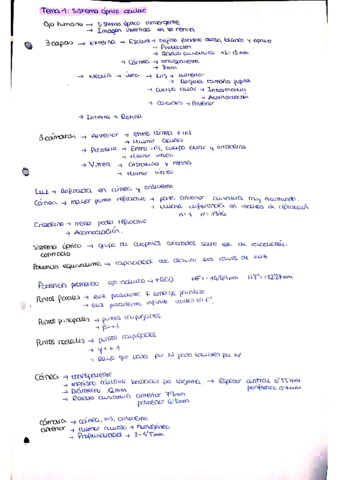 Tema 1: Sistema óptico ocular
Ojo humano → Sistema óptico convergente
→ Imagen invertida en la retina
3 capas → Externa → Esclera → tejido fibroso denso, blanco y opaco
→ Protección
→ Radio curvatura 12-13mm
→ Córnea → transparente
→ Media → úvea → Iris → anterior
→ Regula tamaño pupila
→ Cuerpo ciliar → Intermedia
→ Acomodación
→ Coroides → Posterior
→ Interna → Retina
3 cámaras → Anterior → Entre córnea e iris
→ Humor acuoso
→ Posterior → Entre iris, cuerpo ciliar y cristalino
→ Vítrea → Cristalino y retina
→ Humor vítreo
Luz → Refractada en córnea y cristalino
Córnea → mayor poder refractivo → parte anterior curvatura muy acentuada
→ Mucha diferencia en índices de refracción
Cristalino → menor poder refractivo
→ Acomodación
Sistema óptico → grupo de dioptrios centrados sobre eje de revolución
centrado
Potencia equivalente → capacidad de desviar los rayos de luz
Potencia promedio ojo adulto → +60D
Puntos focales → Luz procedente F emerge paralela
→ Luz procedente infinito incide en F'
Puntos principales → puntos conjugados
→ β=+1
Puntos nodales → puntos conjugados
→ γ=+1
→ Rayo que pasa por N pasa también por N'
Córnea → transparente
→ Espesor central 0'55mm
→ Diámetro 12mm
→ Radio curvatura anterior
posterior
cámara → córnea, iris, cristalino
anterior → Humor acuoso → Homogéneo
→ Profundidad → 3-4'5mm